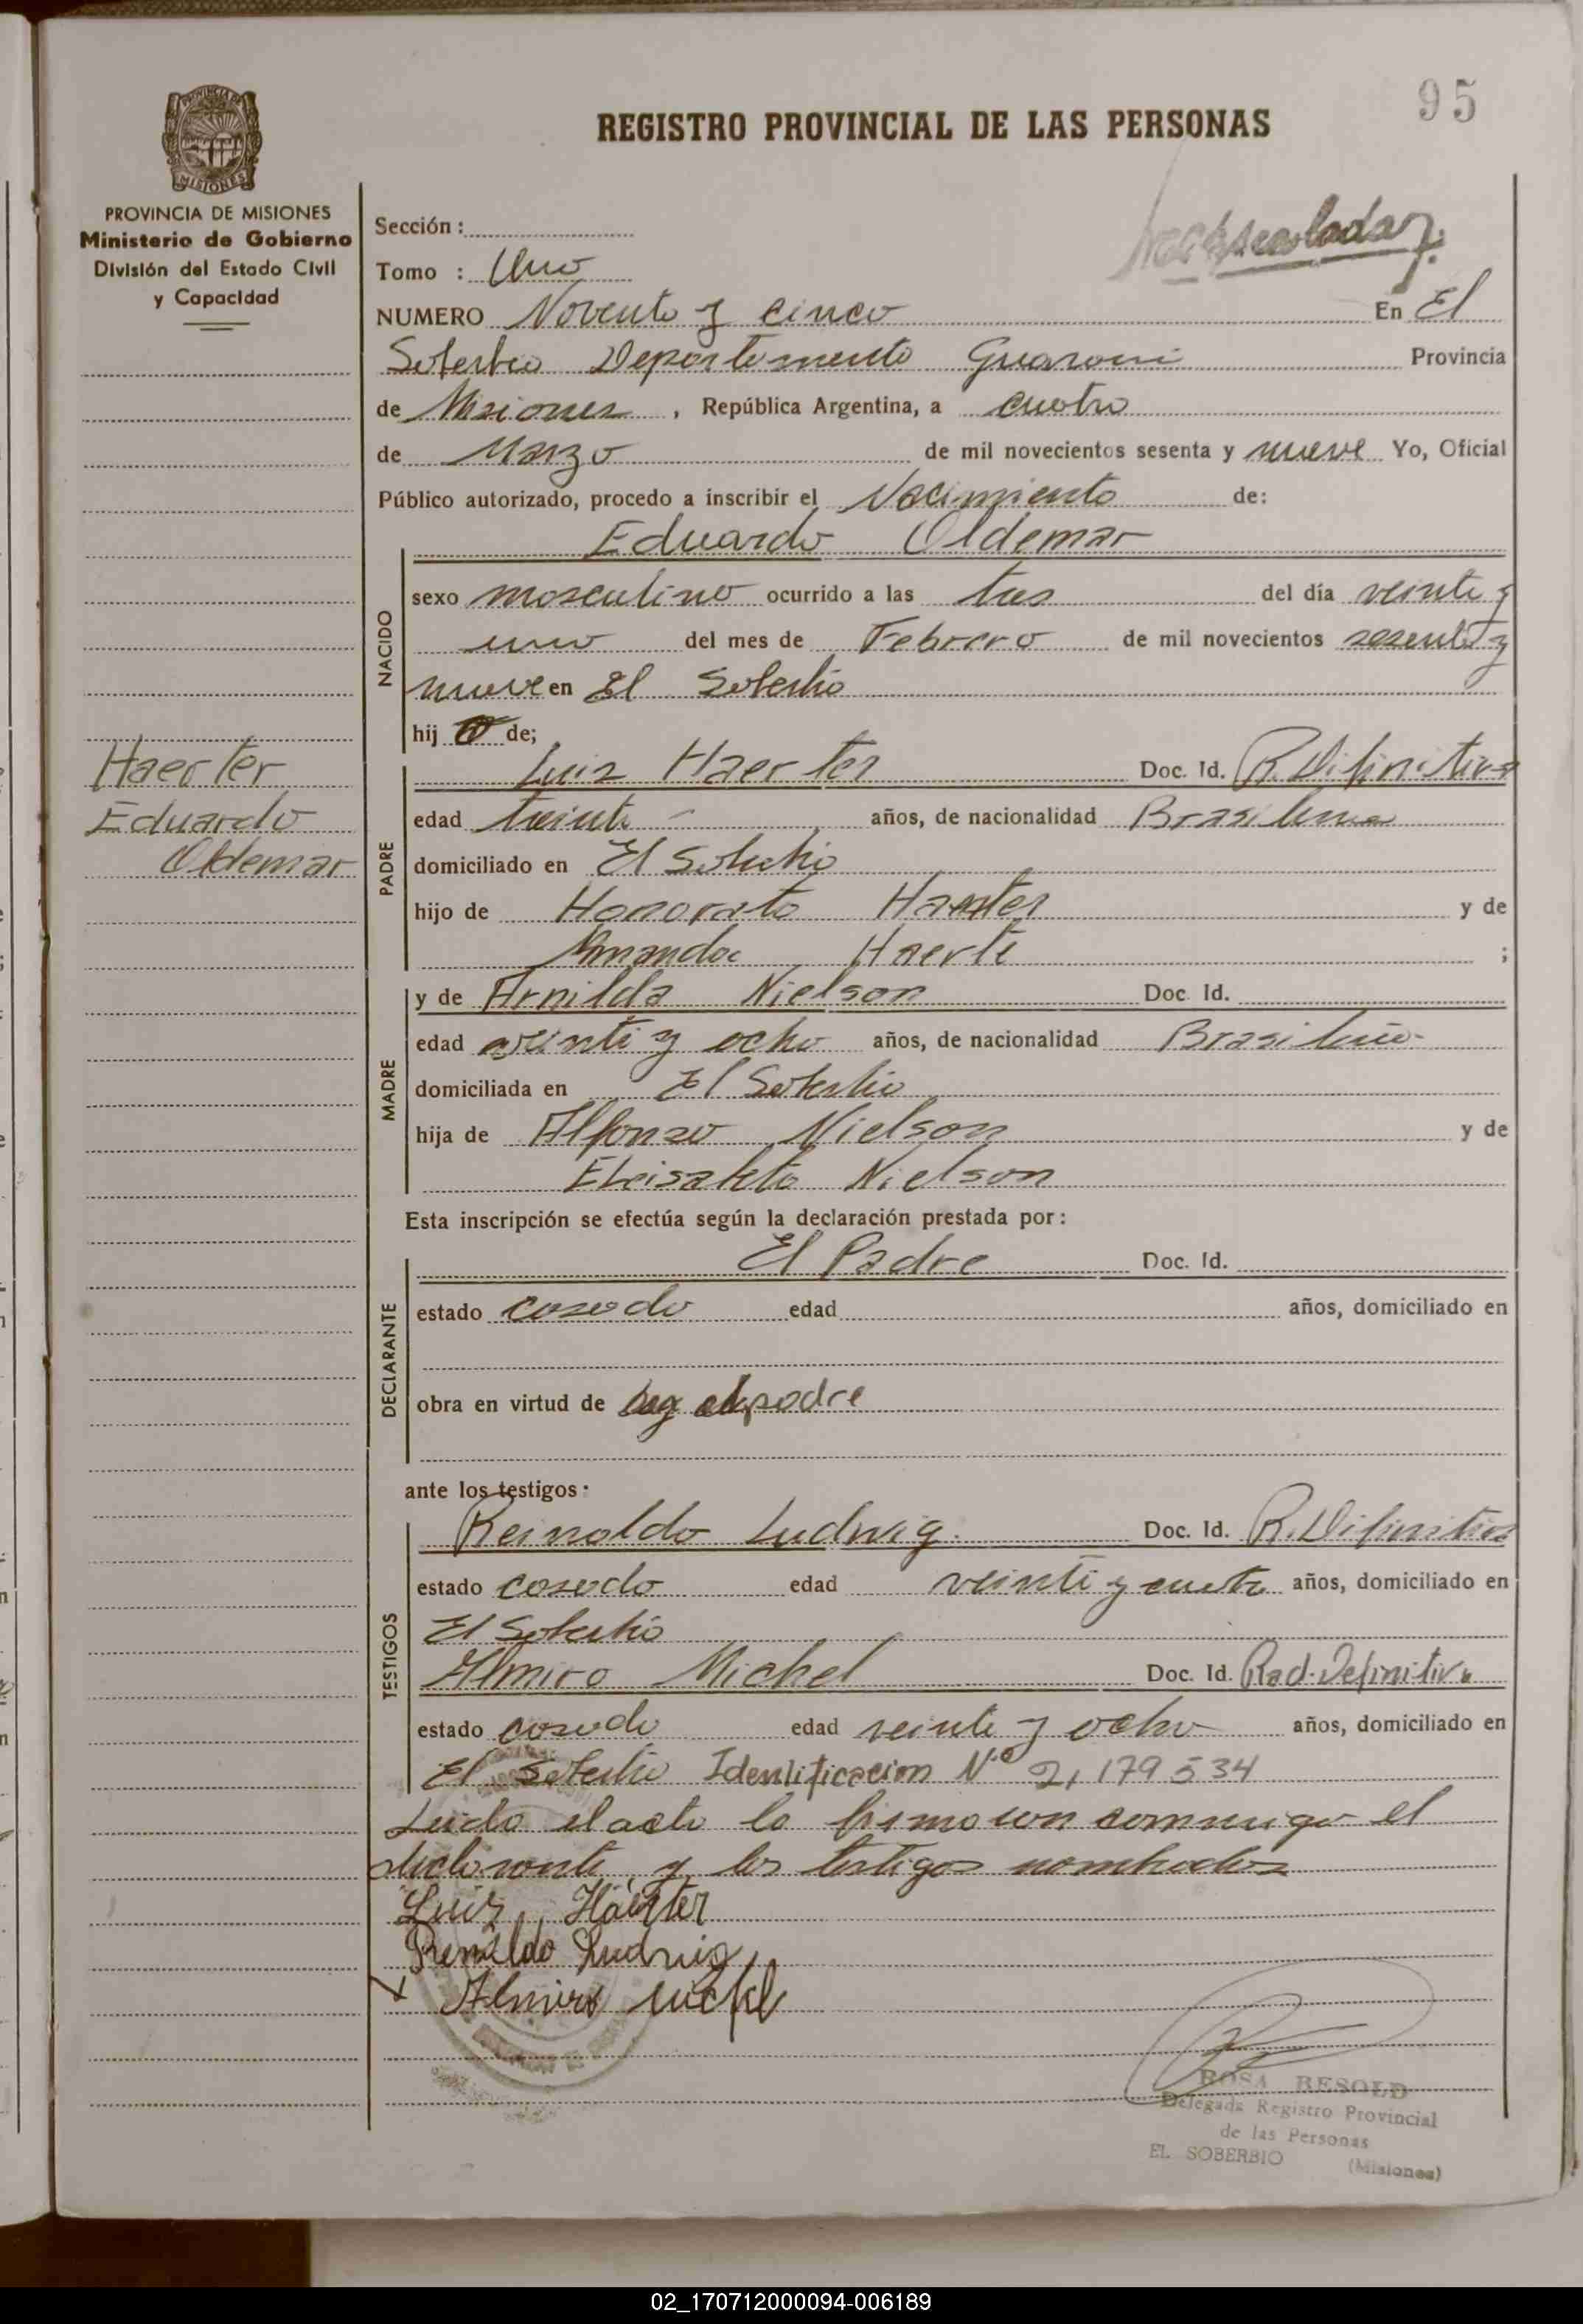 95
REGISTRO PROVINCIAL DE LAS PERSONAS
PROVINCIA DE MISIONES
Ministerio de Gobierno
División del Estado Civil
y Capacidad
Sección :
Tomo : Uno
NUMERO Noventa y cinco En El
Soberbio Departamento Guarani Provincia
de Misiones , República Argentina, a cuatro
de Marzo de mil novecientos sesenta y nueve Yo, Oficial
Público autorizado, procedo a inscribir el Nacimiento de:
Eduardo Oldemar
NACIDO
sexo masculino ocurrido a las tres del día veinte y
uno del mes de Febrero de mil novecientos sesenta y
nueve en El Soberbio
hijo de;
Haerter
Eduardo
Oldemar
PADRE
Luiz Haerter Doc. Id. R. Difinitiva
edad treinta años, de nacionalidad Brasilena
domiciliado en El Soberbio
hijo de Honorato Haerter y de
Amanda Haerte ;
MADRE
y de Arnilda Nielson Doc. Id.
edad veinti y ocho años, de nacionalidad Brasileña
domiciliada en El Soberbio
hija de Alfonso Nielson y de
Nielson
Esta inscripción se efectúa según la declaración prestada por:
DECLARANTE
El Padre Doc. Id.
estado casado edad años, domiciliado en
obra en virtud de padre
ante los testigos:
TESTIGOS
Reinoldo Ludwig. Doc. Id. R. Difinitiva
estado casado edad veinti y cuatro años, domiciliado en
El Soberbio
Almiro Michel Doc. Id. Rad. Definitiva
estado casado edad veinte y ocho años, domiciliado en
El Soberbio Identificacion Nº 2,179534
Leida el acta la firmaron commigo el
declarante y los testigos nombrados
Luiz Haerter
Renaldo Ludwig
Almiro Michel
ROSA RESOLD
Delegada Registro Provincial
de las Personas
EL SOBERBIO (Misiones)
02_170712000094-006189